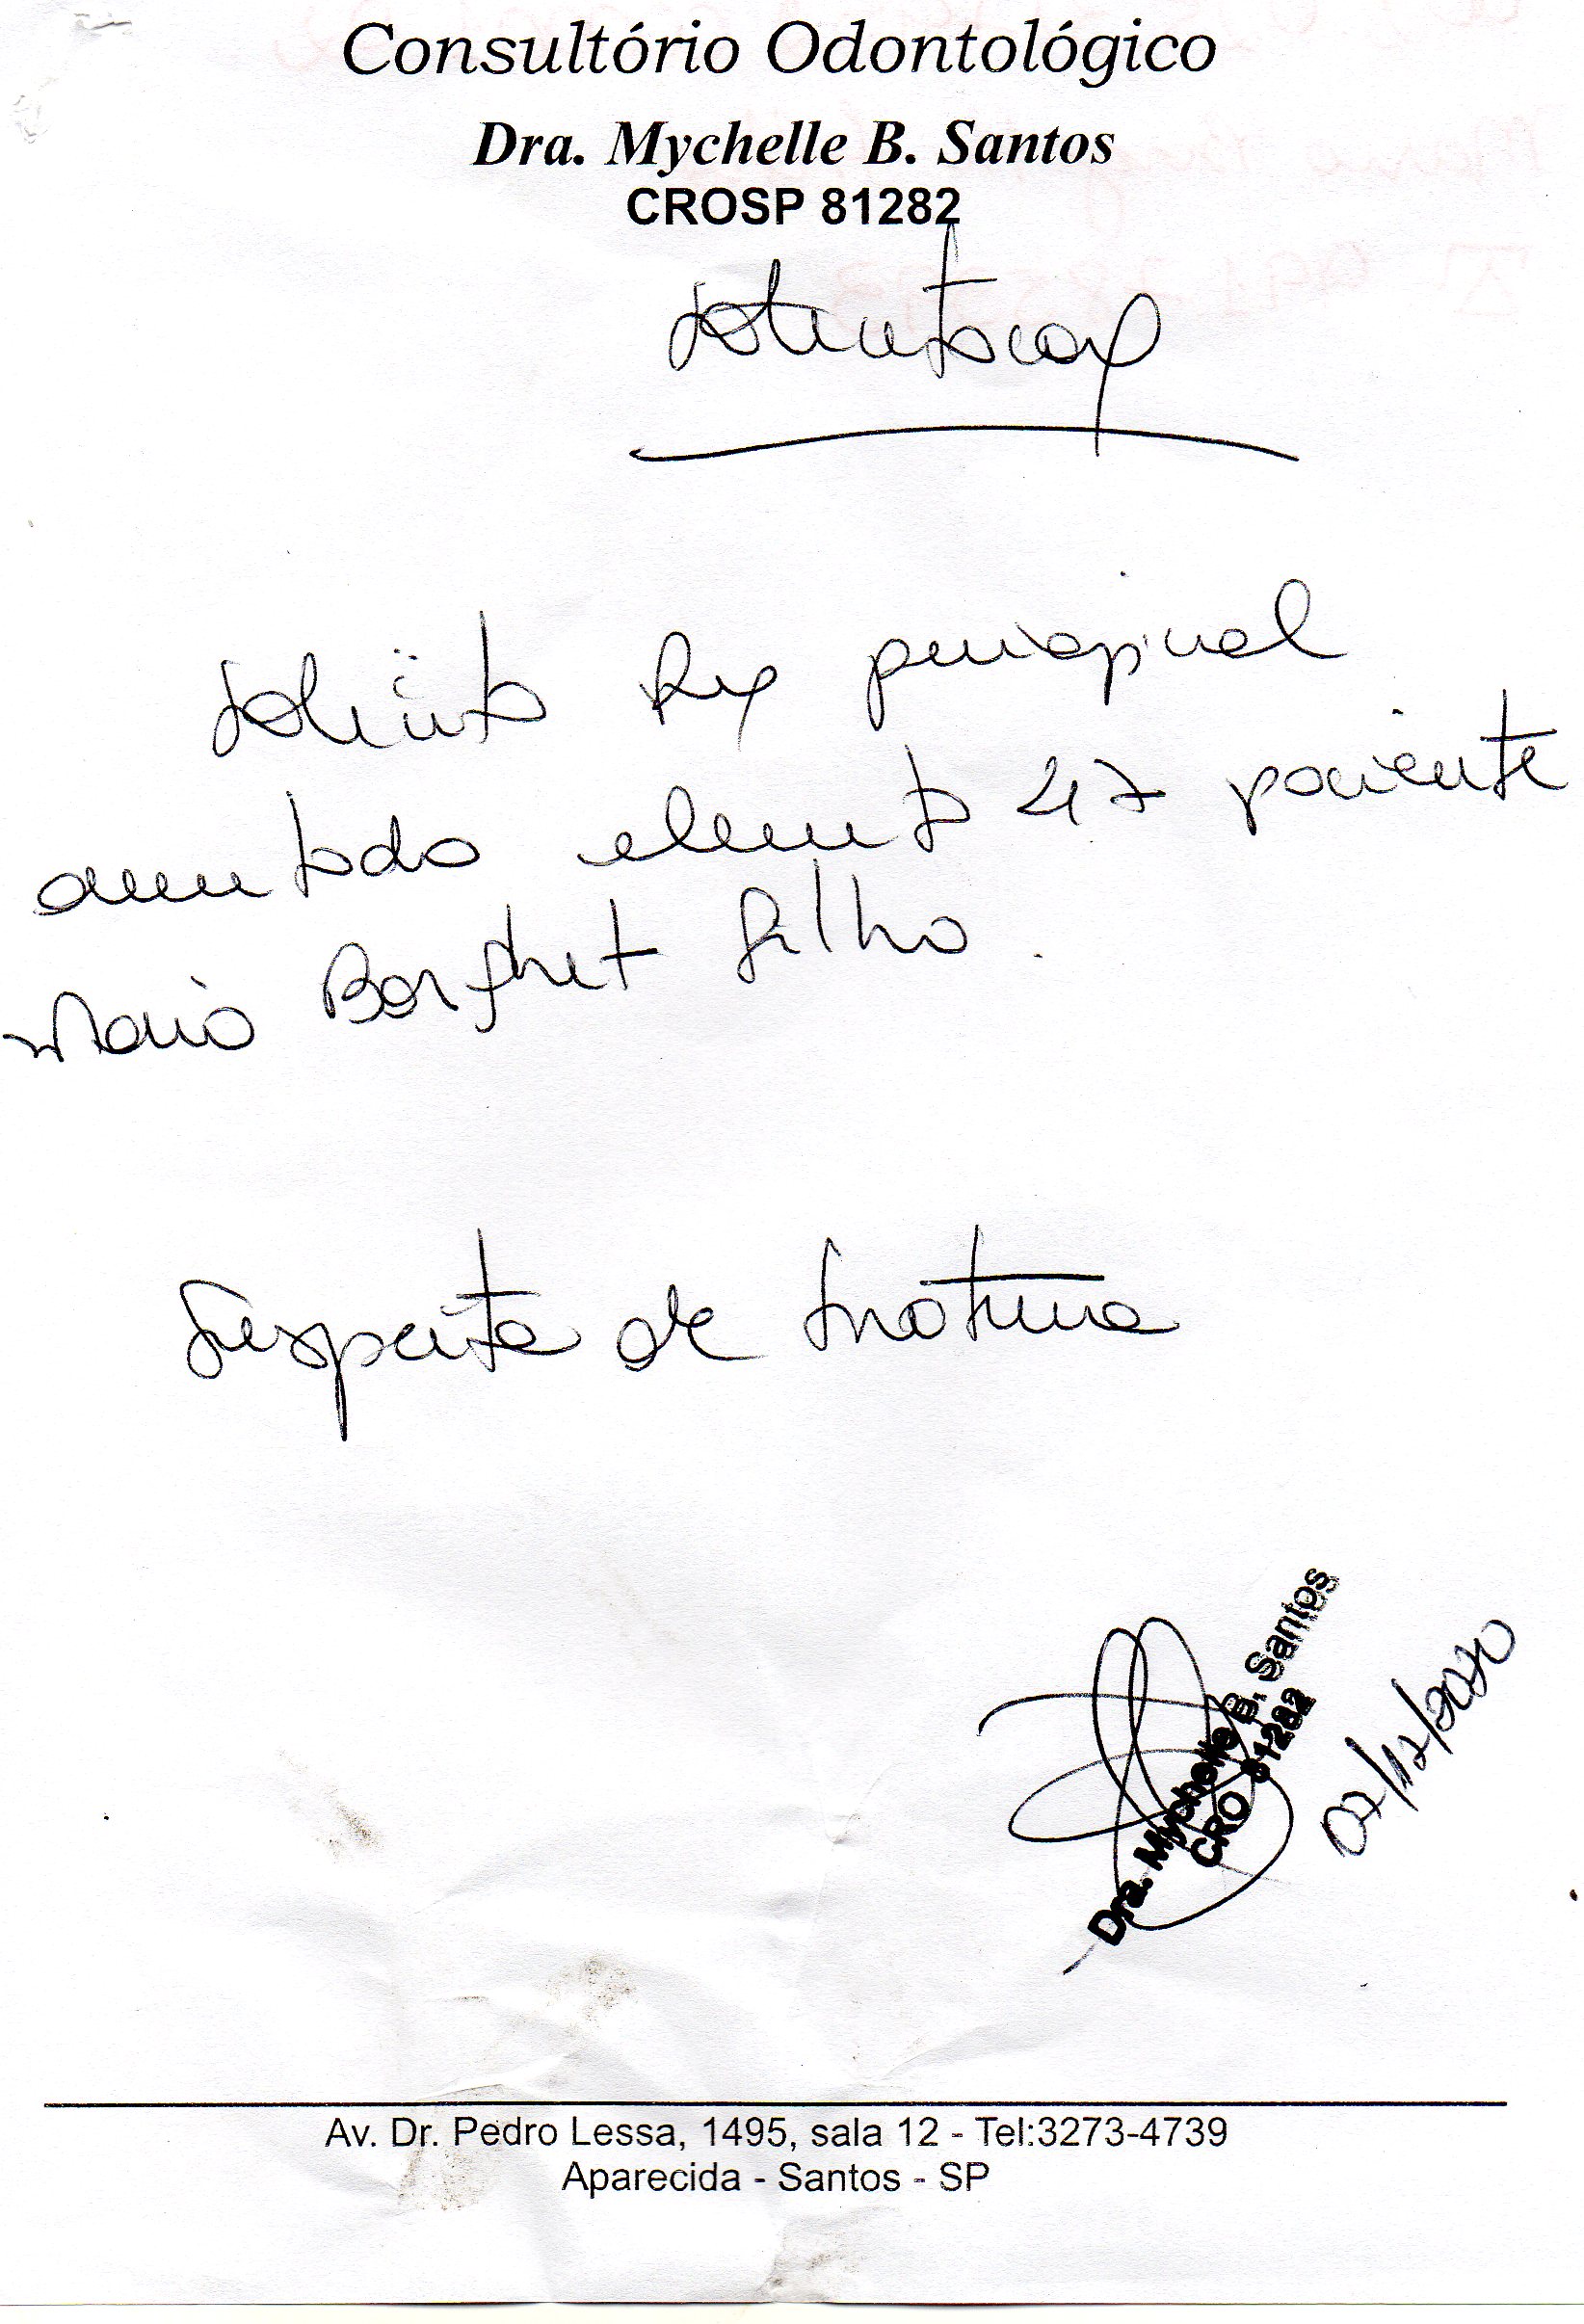 Consultório Odontológico
Dra. Mychelle B. Santos
CROSP 81282
Solicito Rx periapical
elemento 47 paciente
Filho.
Suspeita de fratura
Dra. Mychelle B. Santos
CRO 81282
02/12/2020
Av. Dr. Pedro Lessa, 1495, sala 12 - Tel:3273-4739
Aparecida - Santos - SP